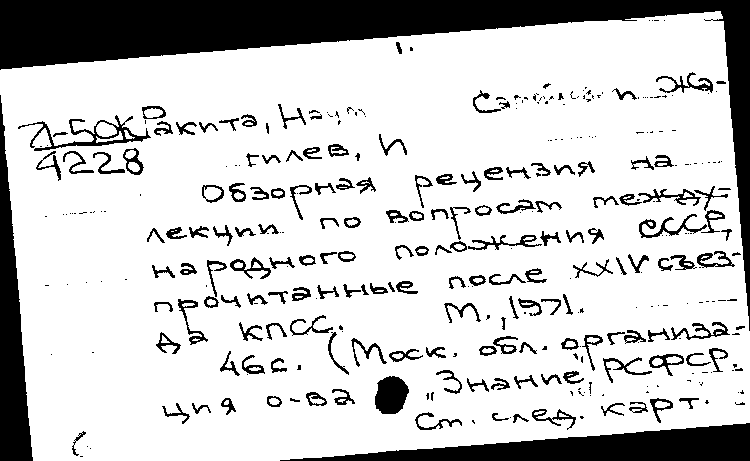 1.
Л-50К Ракита, Наум и Жа-
4228 гилев, И
Обзорная рецензия на
лекции по вопросам между-
народного положения СССР,
прочитанные после XXIV съез-
да КПСС. М., 1971.
46с. (Моск. обл. организа-
ция о-ва „Знание" РСФСР.
См. след. карт.